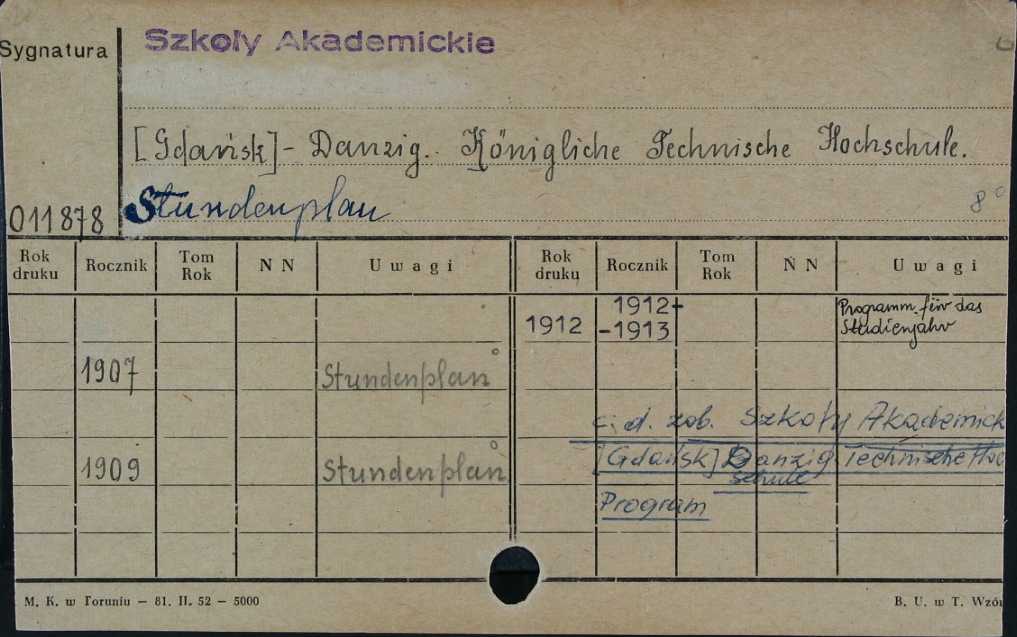 Sygnatura
Szkoły Akademickie
[Gdańsk] - Danzig. Königliche Technische Hochschule.
Stundenplan
8°
011878
Rok druku Rocznik Tom Rok N N Uwagi Rok druku Rocznik Tom Rok N N Uwagi
1912 1912-
-1913 Programm für das
Studienjahr
1907 Stundenplan
c.d. zob. Szkoły Akademick
1909 Stundenplan [Gdańsk] Danzig Technische Hoc
schule
Program
M. K. w Toruniu — 81. II. 52 — 5000
B. U. w T. Wzór